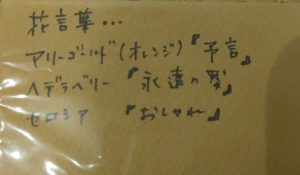 花言葉...
マリーゴールド(オレンジ)『予言』
ヘデラベリー『永遠の愛』
セロシア『おしゃれ』